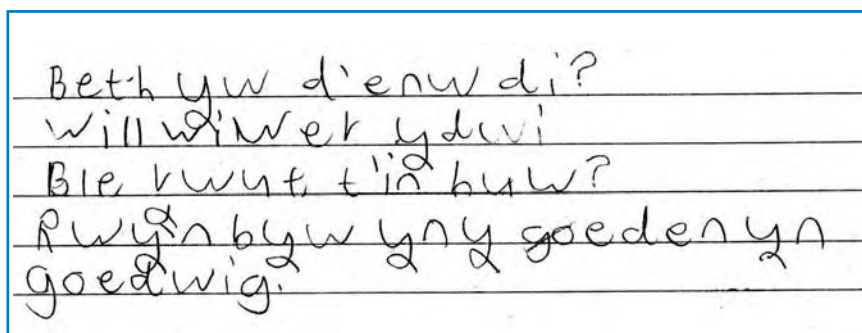 Beth yw d'enw di?
Will wiwer ydwi
Ble rwyt t'in byw?
Rwy'n byw yn y goeden yn
goedwig.